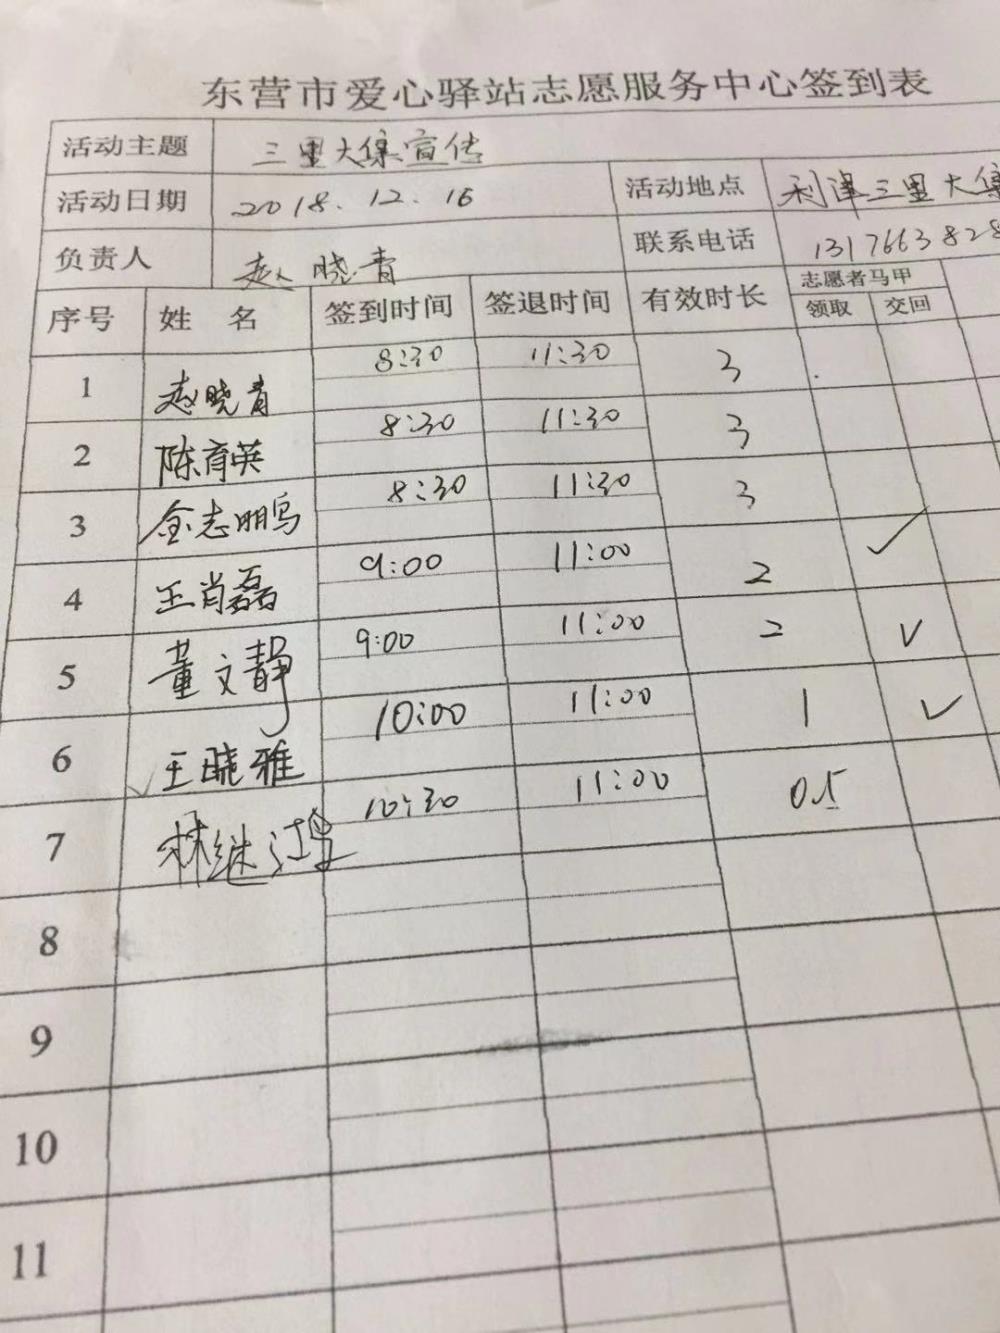 东营市爱心驿站志愿服务中心签到表
活动主题 三里大集宣传
活动日期 2018.12.16 活动地点 利津三里大集
负责人 赵晓青 联系电话 1317663828
序号 姓 名 签到时间 签退时间 有效时长 志愿者马甲
领取 交回
1 赵晓青 8:30 11:30 3
2 陈育英 8:30 11:30 3
3 金志鹏 8:30 11:30 3
4 王肖磊 9:00 11:00 2 ✓
5 董文静 9:00 11:00 2 ✓
6 王晓雅 10:00 11:00 1 ✓
7 林继 10:30 11:00 0.5
8
9
10
11